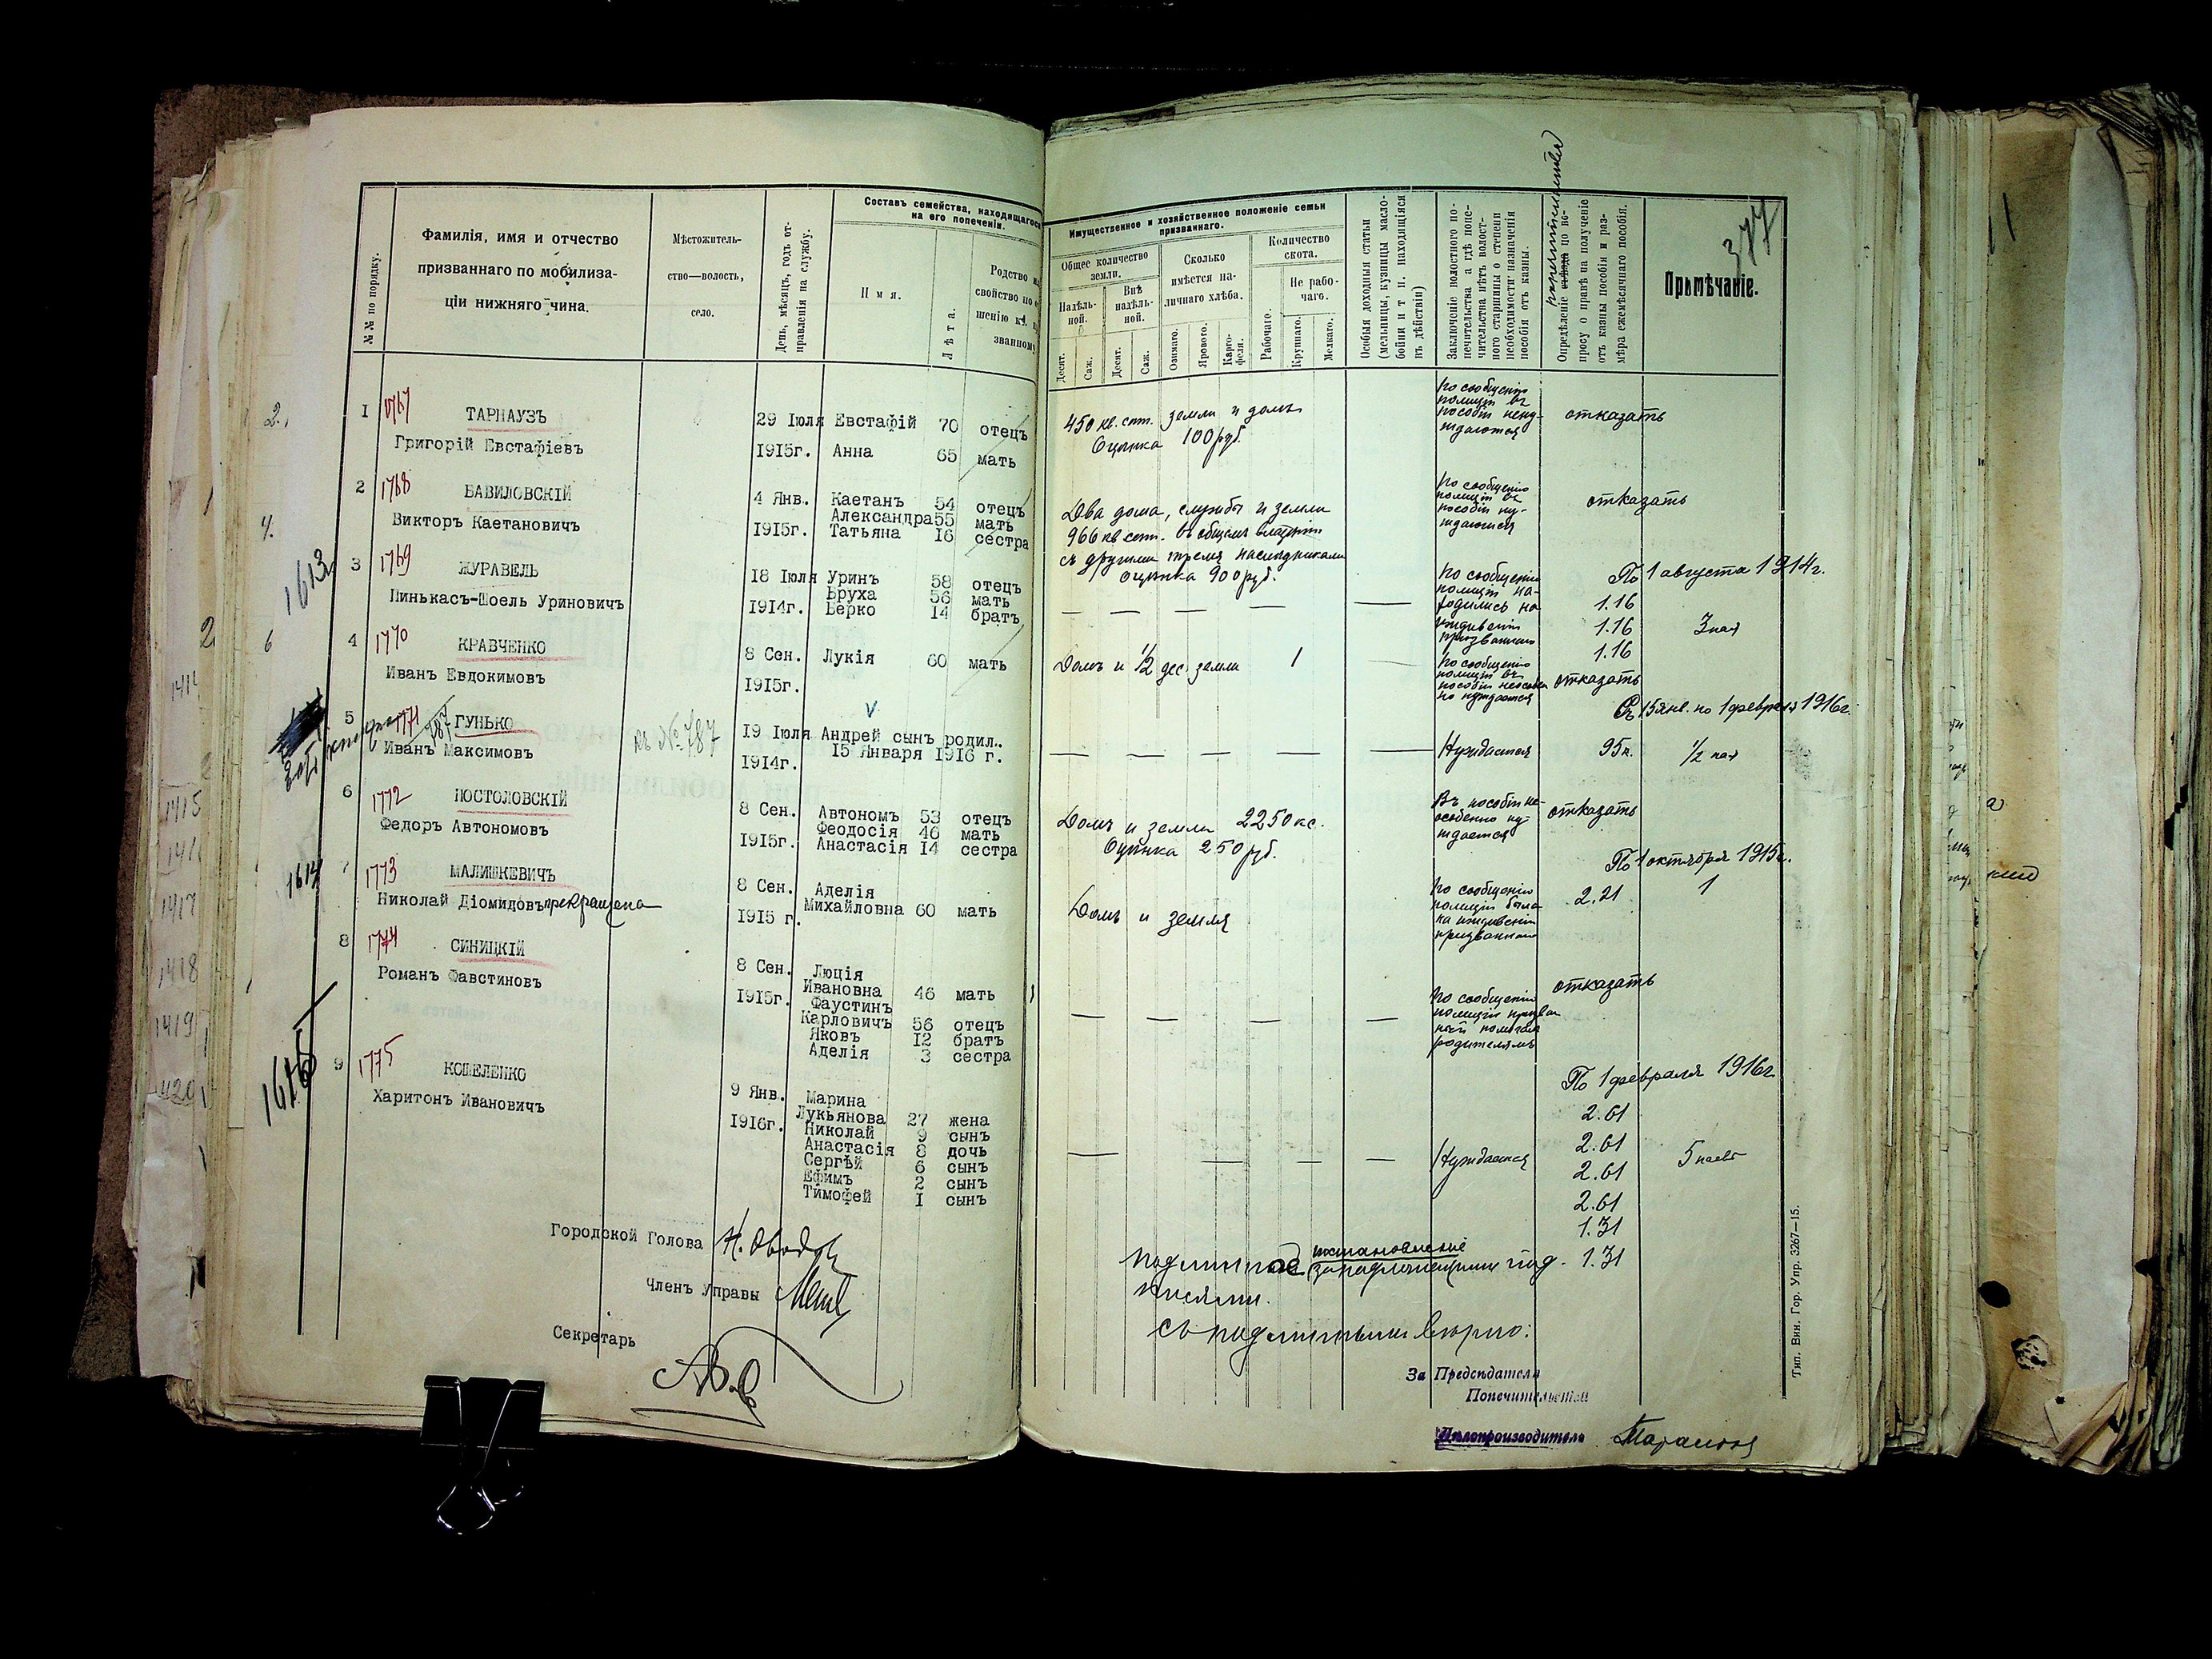 377
№№ по порядку.
Фамилія, имя и отчество
призваннаго по мобилиза-
ціи нижняго чина.
Мѣстожитель-
ство—волость,
село.
День, мѣсяцъ, годъ от-
правленія на службу.
Составъ семейства, находящагося
на его попеченіи.
Имя.
Лѣта.
Родство и
свойство по
шенію къ
званному
Имущественное и хозяйственное положеніе семьи
призваннаго.
Общее количество
земли.
Надѣль-
ной.
Внѣ
надѣль-
ной.
Десят.
Саж.
Десят.
Саж.
Сколько
имѣется на-
личнаго хлѣба.
Озимаго.
Яроваго.
Карто-
феля.
Количество
скота.
Рабочаго.
Не рабо-
чаго.
Крупнаго.
Мелкаго.
Особыя доходныя статьи
(мельницы, кузницы масло-
бойни и т п. находящіяся
въ дѣйствіи)
Заключеніе волостного по-
печительства а гдѣ попе-
чительства нѣтъ волост-
ного старшины о степени
необходимости назначенія
пособія отъ казны.
Опредѣленіе съѣзда по во-
просу о правѣ на полученіе
отъ казны пособія и раз-
мѣра ежемѣсячнаго пособія.
Примѣчаніе.
2.
1 1767 ТАРНАУЗЪ
Григорій Евстафіевъ
29 Іюля Евстафій 70 отецъ
1915г. Анна 65 мать
450 кв. саж. земли и домъ
Оцѣнка 100 руб.
По сообщенію
полиціи въ
пособіи нену-
ждаются
отказать
4.
2 1768 ВАВИЛОВСКІЙ
Викторъ Каетановичъ
4 Янв. Каетанъ 54 отецъ
Александра 55 мать
1915г. Татьяна 16 сестра
Два дома, службы и земли
966 кв саж. въ общемъ владѣніи
съ другими тремя наслѣдниками
оцѣнка 900 руб.
По сообщенію
полиціи въ
пособіи ну-
ждаются
отказать
1613
3 1769 ЖУРАВЕЛЬ
Пинькасъ-Шоель Уриновичъ
18 Іюля Уринъ 58 отецъ
Бруха 56 мать
1914г. Берко 14 братъ
По сообщенію
полиціи на-
ходились на
иждивеніи
призваннаго
По 1 августа 1914г.
1.16
1.16
1.16
3 пая
6
4 1770 КРАВЧЕНКО
Иванъ Евдокимовъ
8 Сен. Лукія 60 мать
1915г.
Домъ и 1/2 дес. земли 1
По сообщенію
полиціи въ
пособіи неособен
но нуждается
отказать
5 1771 787 ГУНЬКО
Иванъ Максимовъ
къ № 787
19 Іюля Андрей сынъ родил.
15 Января 1916 г.
1914г.
Нуждается
Съ 15 янв. по 1 февраля 1916г.
95 к.
1/2 пая
6 1772 ПОСТОЛОВСКІЙ
Федоръ Автономовъ
8 Сен. Автономъ 53 отецъ
Феодосія 46 мать
1915г. Анастасія 14 сестра
Домъ и земля 2250 кс.
Оцѣнка 250 руб.
Въ пособіи не-
особенно ну-
ждается
отказать
1614
7 1773 МАЛИШКЕВИЧЪ
Николай Діомидовъ прекращена
8 Сен. Аделія
Михайловна 60 мать
1915 г.
Домъ и земля
По сообщенію
полиціи была
на иждивеніи
призваннаго
По 1 октября 1915г.
2.21
1
8 1774 СИНИЦКІЙ
Романъ Фавстиновъ
8 Сен. Люція
Ивановна 46 мать
1915г. Фаустинъ
Карловичъ 56 отецъ
Яковъ 12 братъ
Аделія 3 сестра
По сообщенію
полиціи призван
ный помогалъ
родителямъ
отказать
1615
9 1775 КОШЕЛЕНКО
Харитонъ Ивановичъ
9 Янв. Марина
Лукьянова 27 жена
1916г. Николай 9 сынъ
Анастасія 8 дочь
Сергѣй 6 сынъ
Ефимъ 2 сынъ
Тимофей 1 сынъ
Нуждается
По 1 февраля 1916г
2.61
2.61
2.61
2.61
1.31
1.31
5 паевъ
Городской Голова
Членъ Управы
Секретарь
Подлинное постановленіе
за надлежащими под-
писями.
Съ подлиннымъ вѣрно:
За Предсѣдателя
Попечительства
Дѣлопроизводитель
Тип. Вин. Гор. Упр. 3267—15.
1414
1415
1417
1418
1419
1420